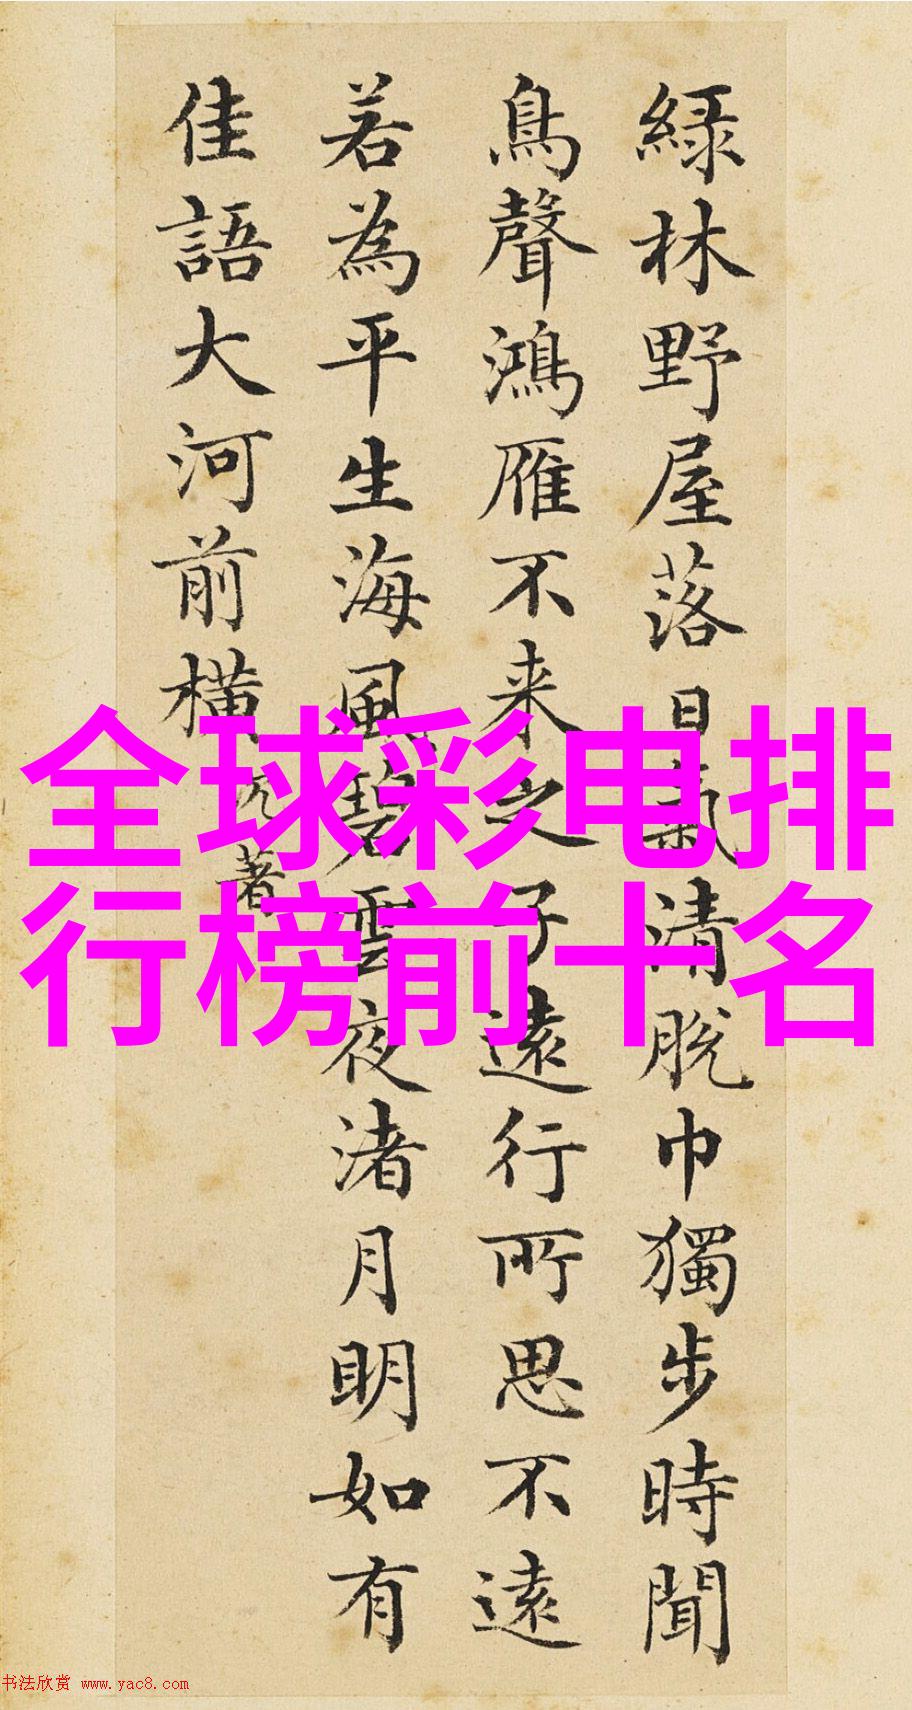 緑林野屋落日氣清脱巾獨步時聞
鳥聲鴻雁不来之子遠行所思不遠
若為平生海風碧雲夜渚月明如有
佳語大河前橫
著
全球彩电排
行榜前十名
书法欣赏 www.yac8.com